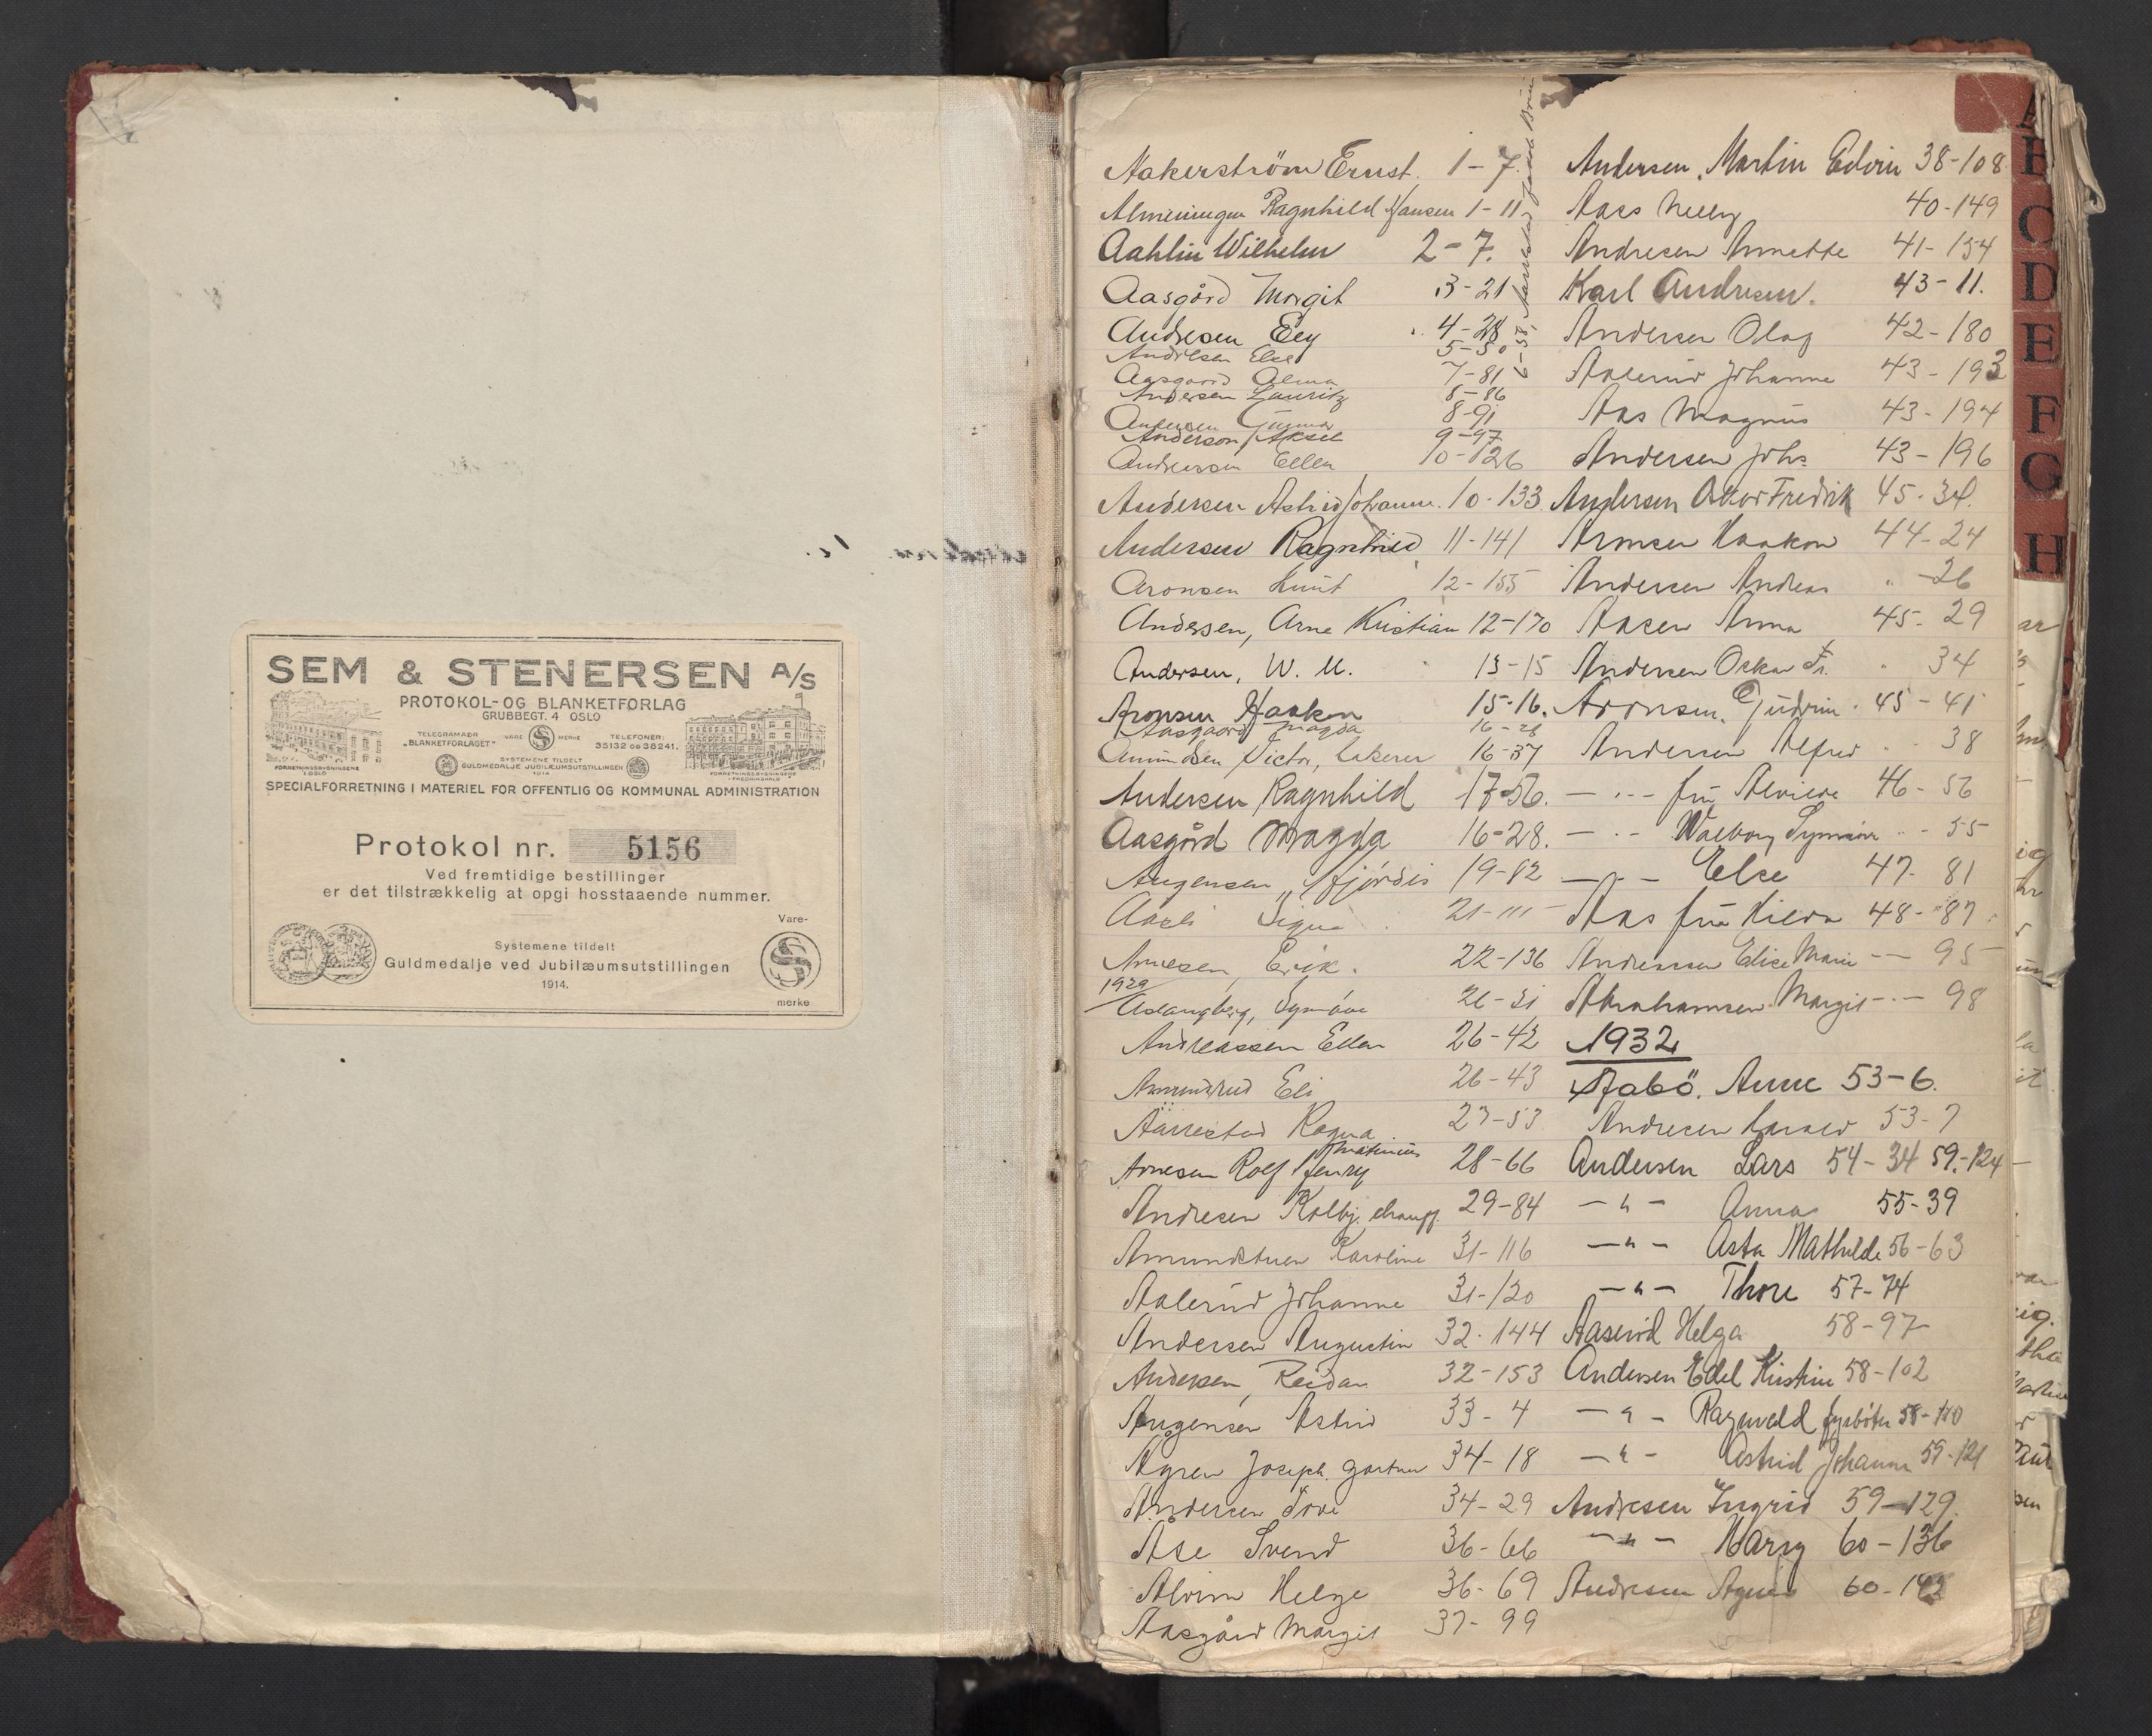 SEM & STENERSEN A/S
PROTOKOL- OG BLANKETFORLAG
GRUBBEGT. 4 OSLO
TELEGRAMADR
„BLANKETFORLAGET"
VARE MERKE
TELEFONER:
35132 OG 36241.
SYSTEMENE TILDELT
GULDMEDALJE JUBILÆUMSUTSTILLINGEN
1914
FORRETNINGSBYGNINGENE
I OSLO
FORRETNINGSBYGNINGEN
I FREDRIKSHALD
SPECIALFORRETNING I MATERIEL FOR OFFENTLIG OG KOMMUNAL ADMINISTRATION
Protokol nr. 5156
Ved fremtidige bestillinger
er det tilstrækkelig at opgi hosstaaende nummer.
Systemene tildelt
Guldmedalje ved Jubilæumsutstillingen
1914.
Vare-
merke
Aakerström Ernst. 1-7.
Ragnhild Hansen 1-11
Aahlin Wilhelm 2-7.
Aasgård Margit 3-21
Andresen Elly 4-28
Andresen Else 5-30
Aasgaard Alma 7-81
Andersen Lauritz 8-86
Andersen Gunnar 8-91
Anderson Aksel 9-97
Andreassen Ellen 10-126
Andersen Astrid Johanne. 10-133
Andersen Ragnhild 11-141
Aronsen Knut 12-155
Andersen, Arne Kristian 12-170
Andersen, W. M. 13-15
Aronsen Haakon 15-16.
Aasgaard Magda 16-28
Amundsen Victor, 16-37
Andersen Ragnhild 17-56.
Aasgård Magda 16-28.
Augensen, Hjørdis 19-82
Aasli Signe 21-111
Arnesen, Erik. 22-136
1929
Aslangberg, Synnöve 26-31
Andreassen Ellen 26-42
Amundrud Eli 26-43
Aarrestad Ragna 27-53
Arnesen Rolf Henry Mathinius 28-66
Andresen Kolbj. 29-84
Amundsen Karoline 31-116
Aalerud Johanne 31-120
Andersen Augustin 32-144
Andersen, Reidar 32-153
Augensen Astrid 33-4
Ågren Joseph. gartner 34-18
Andersen Tove 34-29
Åse Svend 36-66
Alvim Helge 36-69
Aasgård Margit 37-99
Andersen, Martin Edvin 38-108
Aass Nelly 40-149
Andresen Annette 41-154
Karl Andresen. 43-11.
Andersen Olaf 42-180
Aalerud Johanne 43-193
Aas Magnus 43-194
Andersen Johs 43-196
Andersen Oskar Fredrik 45-34.
Aronsen Haakon 44-24
Andersen Andreas " -26
Aasen Anna 45-29
Andersen Oskar Fr. " 34
Aronsen. Gudrun. 45-41
Andersen Alfred " - 38
— " — fru Alvilde 46-56
— " — Walborg Synnöve " - 55
— " — Else 47-81
Aas fru Hilda 48-87
Andreassen Elise Marie — 95
Abrahamsen Margit - " - 98
1932
Szabö. Anne 53-6.
Andresen Harald 53-7
Andersen Lars 54-34 59.-124
— " — Anna 55-39
— " — Asta Mathilde 56-63
— " — Thore 57-74
Aaserud Helga 58-97
Andersen Edel Kristine 58-102
— " — Ragnvald fyrböter 58-110
— " — Astrid Johanne 59-121
Andresen Ingrid 59-129.
— " — Harry 60-136
Andresen Agnes 60-142
A
B
C
D
E
F
G
H